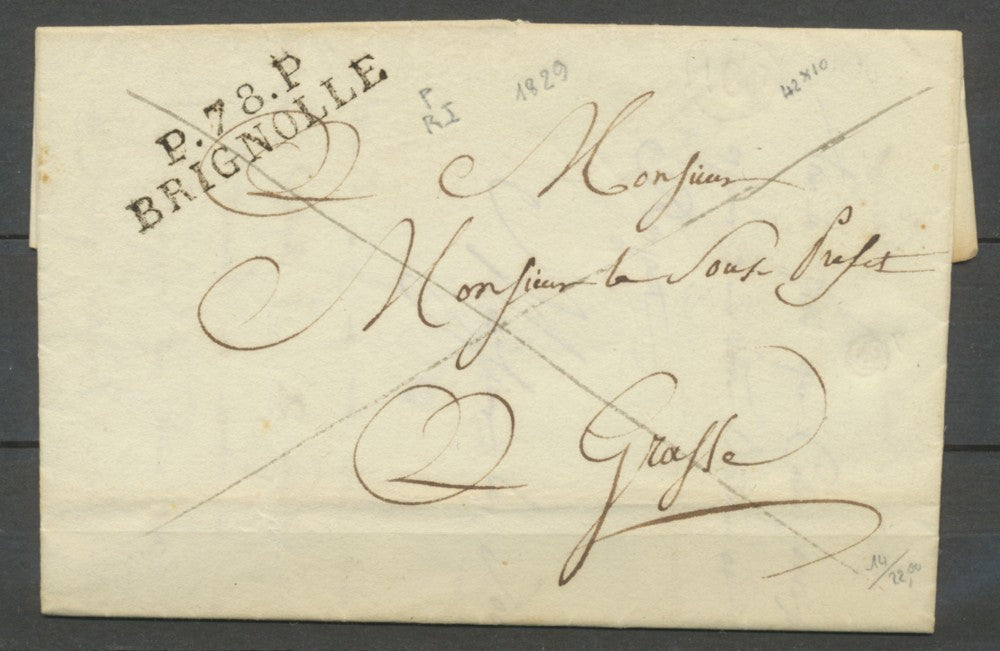 P.78.P
BRIGNOLLE
P
RI
1829
42x10
A Monsieur
Monsieur le Sous Prefet
A Grasse
14/22,00